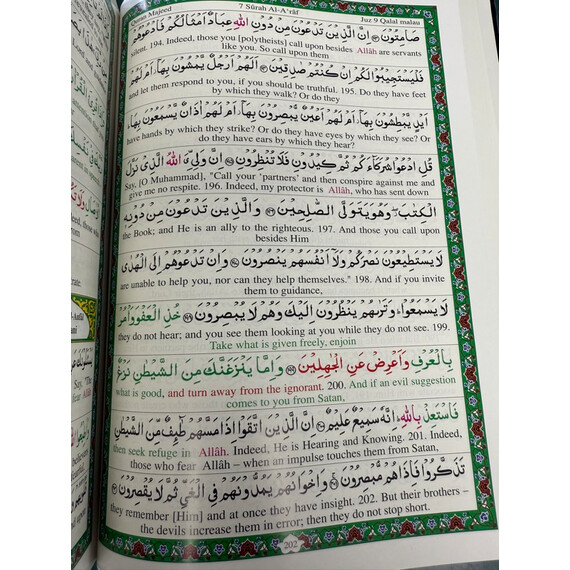 Quran Majeed 7 Sūrah Al-A'rāf Juz 9 Qalal malau
صَامِتُوْنَ اِنَّ الَّذِيْنَ تَدْعُوْنَ مِنْ دُوْنِ اللّٰهِ عِبَادٌ اَمْثَالُكُمْ فَادْعُوْهُمْ
silent. 194. Indeed, those you [polytheists] call upon besides Allāh are servants
like you. So call upon them
فَلْيَسْتَجِيْبُوْا لَكُمْ اِنْ كُنْتُمْ صٰدِقِيْنَ اَلَهُمْ اَرْجُلٌ يَّمْشُوْنَ بِهَآ اَمْ لَهُمْ
and let them respond to you, if you should be truthful. 195. Do they have feet
by which they walk? Or do they
اَيْدٍ يَّبْطِشُوْنَ بِهَآ اَمْ لَهُمْ اَعْيُنٌ يُّبْصِرُوْنَ بِهَآ اَمْ لَهُمْ اٰذَانٌ يَّسْمَعُوْنَ بِهَا
have hands by which they strike? Or do they have eyes by which they see? Or
do they have ears by which they hear?
قُلِ ادْعُوْا شُرَكَآءَكُمْ ثُمَّ كِيْدُوْنِ فَلَا تُنْظِرُوْنِ اِنَّ وَلِيِّۦَ اللّٰهُ الَّذِيْ نَزَّلَ
Say, [O Muhammad], "Call your 'partners' and then conspire against me and
give me no respite. 196. Indeed, my protector is Allāh, who has sent down
الْكِتٰبَ وَهُوَ يَتَوَلَّى الصّٰلِحِيْنَ وَالَّذِيْنَ تَدْعُوْنَ مِنْ دُوْنِهٖ
the Book; and He is an ally to the righteous. 197. And those you call upon
besides Him
لَا يَسْتَطِيْعُوْنَ نَصْرَكُمْ وَلَآ اَنْفُسَهُمْ يَنْصُرُوْنَ وَاِنْ تَدْعُوْهُمْ اِلَى الْهُدٰى
are unable to help you, nor can they help themselves." 198. And if you invite
them to guidance,
لَا يَسْمَعُوْا وَتَرٰىهُمْ يَنْظُرُوْنَ اِلَيْكَ وَهُمْ لَا يُبْصِرُوْنَ خُذِ الْعَفْوَ وَاْمُرْ
they do not hear; and you see them looking at you while they do not see. 199.
Take what is given freely, enjoin
بِالْعُرْفِ وَاَعْرِضْ عَنِ الْجٰهِلِيْنَ وَاِمَّا يَنْزَغَنَّكَ مِنَ الشَّيْطٰنِ نَزْغٌ
what is good, and turn away from the ignorant. 200. And if an evil suggestion
comes to you from Satan,
فَاسْتَعِذْ بِاللّٰهِ اِنَّهٗ سَمِيْعٌ عَلِيْمٌ اِنَّ الَّذِيْنَ اتَّقَوْا اِذَا مَسَّهُمْ طٰٓئِفٌ مِّنَ الشَّيْطٰنِ
then seek refuge in Allāh. Indeed, He is Hearing and Knowing. 201. Indeed,
those who fear Allāh – when an impulse touches them from Satan,
تَذَكَّرُوْا فَاِذَا هُمْ مُّبْصِرُوْنَ وَاِخْوَانُهُمْ يَمُدُّوْنَهُمْ فِي الْغَيِّ ثُمَّ لَا يُقْصِرُوْنَ
they remember [Him] and at once they have insight. 202. But their brothers –
the devils increase them in error; then they do not stop short.
202